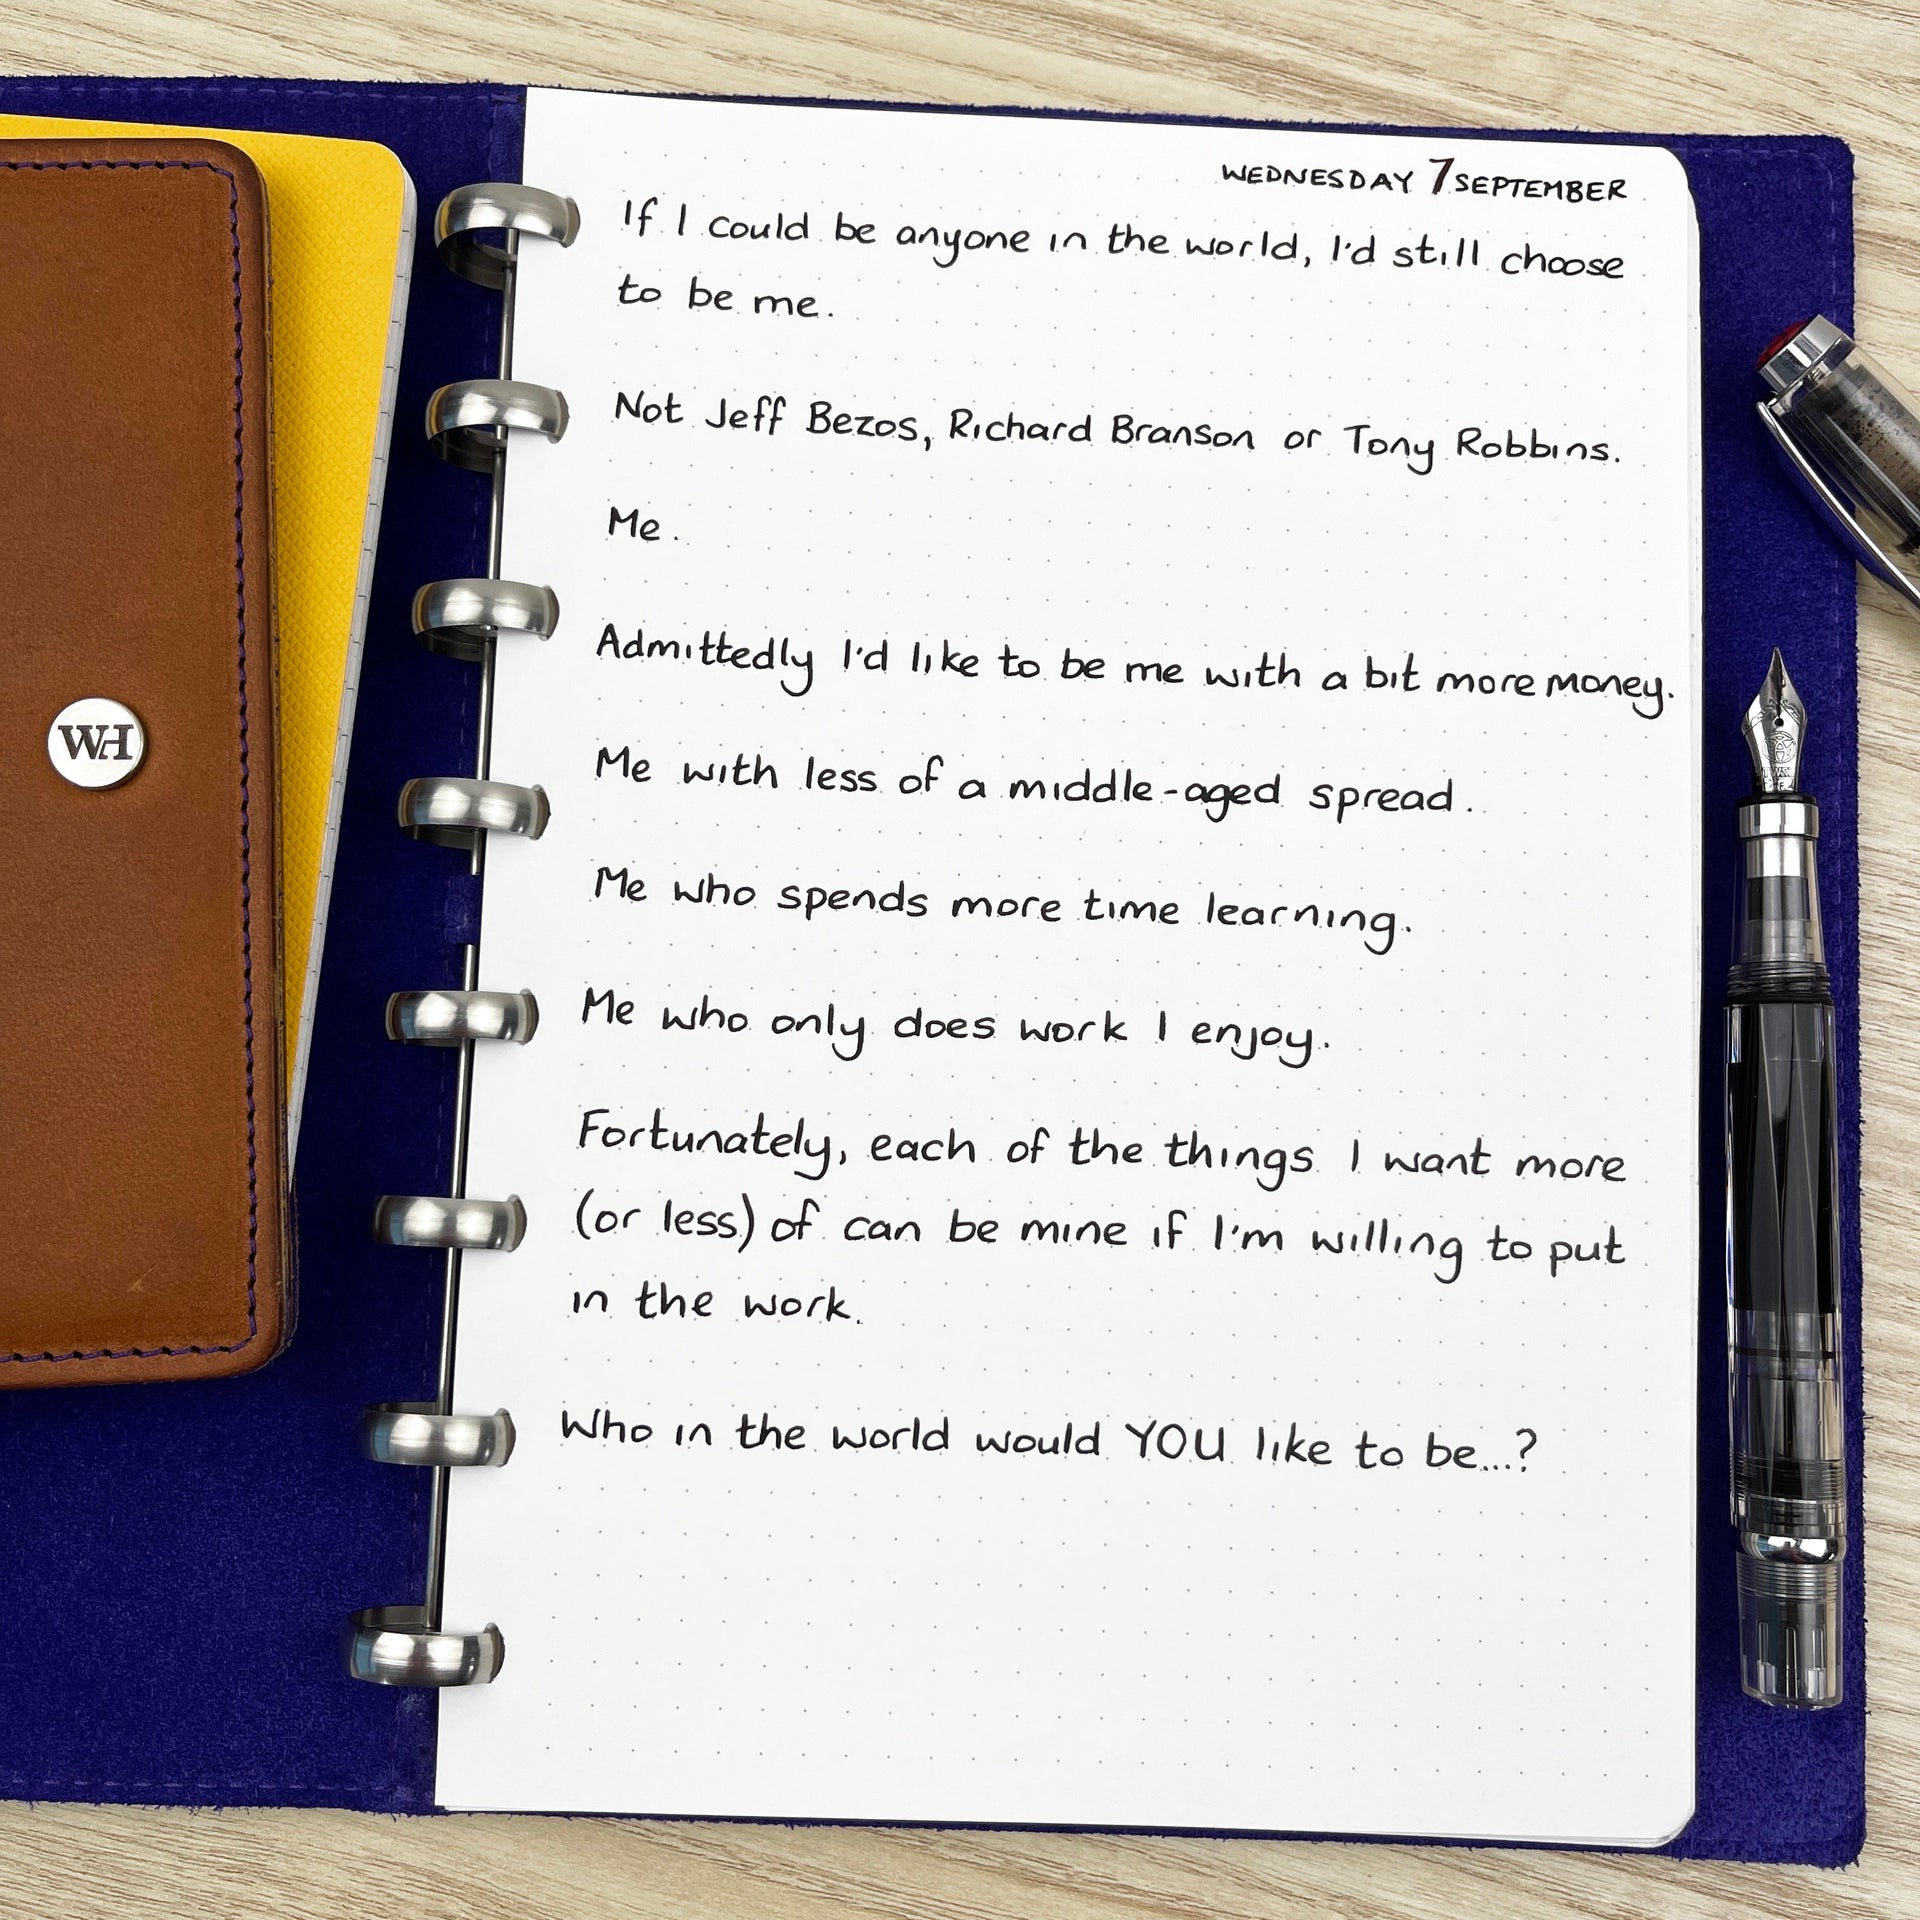 WEDNESDAY 7 SEPTEMBER
If I could be anyone in the world, I'd still choose
to be me.
Not Jeff Bezos, Richard Branson or Tony Robbins.
Me.
Admittedly I'd like to be me with a bit more money.
Me with less of a middle-aged spread.
Me who spends more time learning.
Me who only does work I enjoy.
Fortunately, each of the things I want more
(or less) of can be mine if I'm willing to put
in the work.
Who in the world would YOU like to be...?
WH